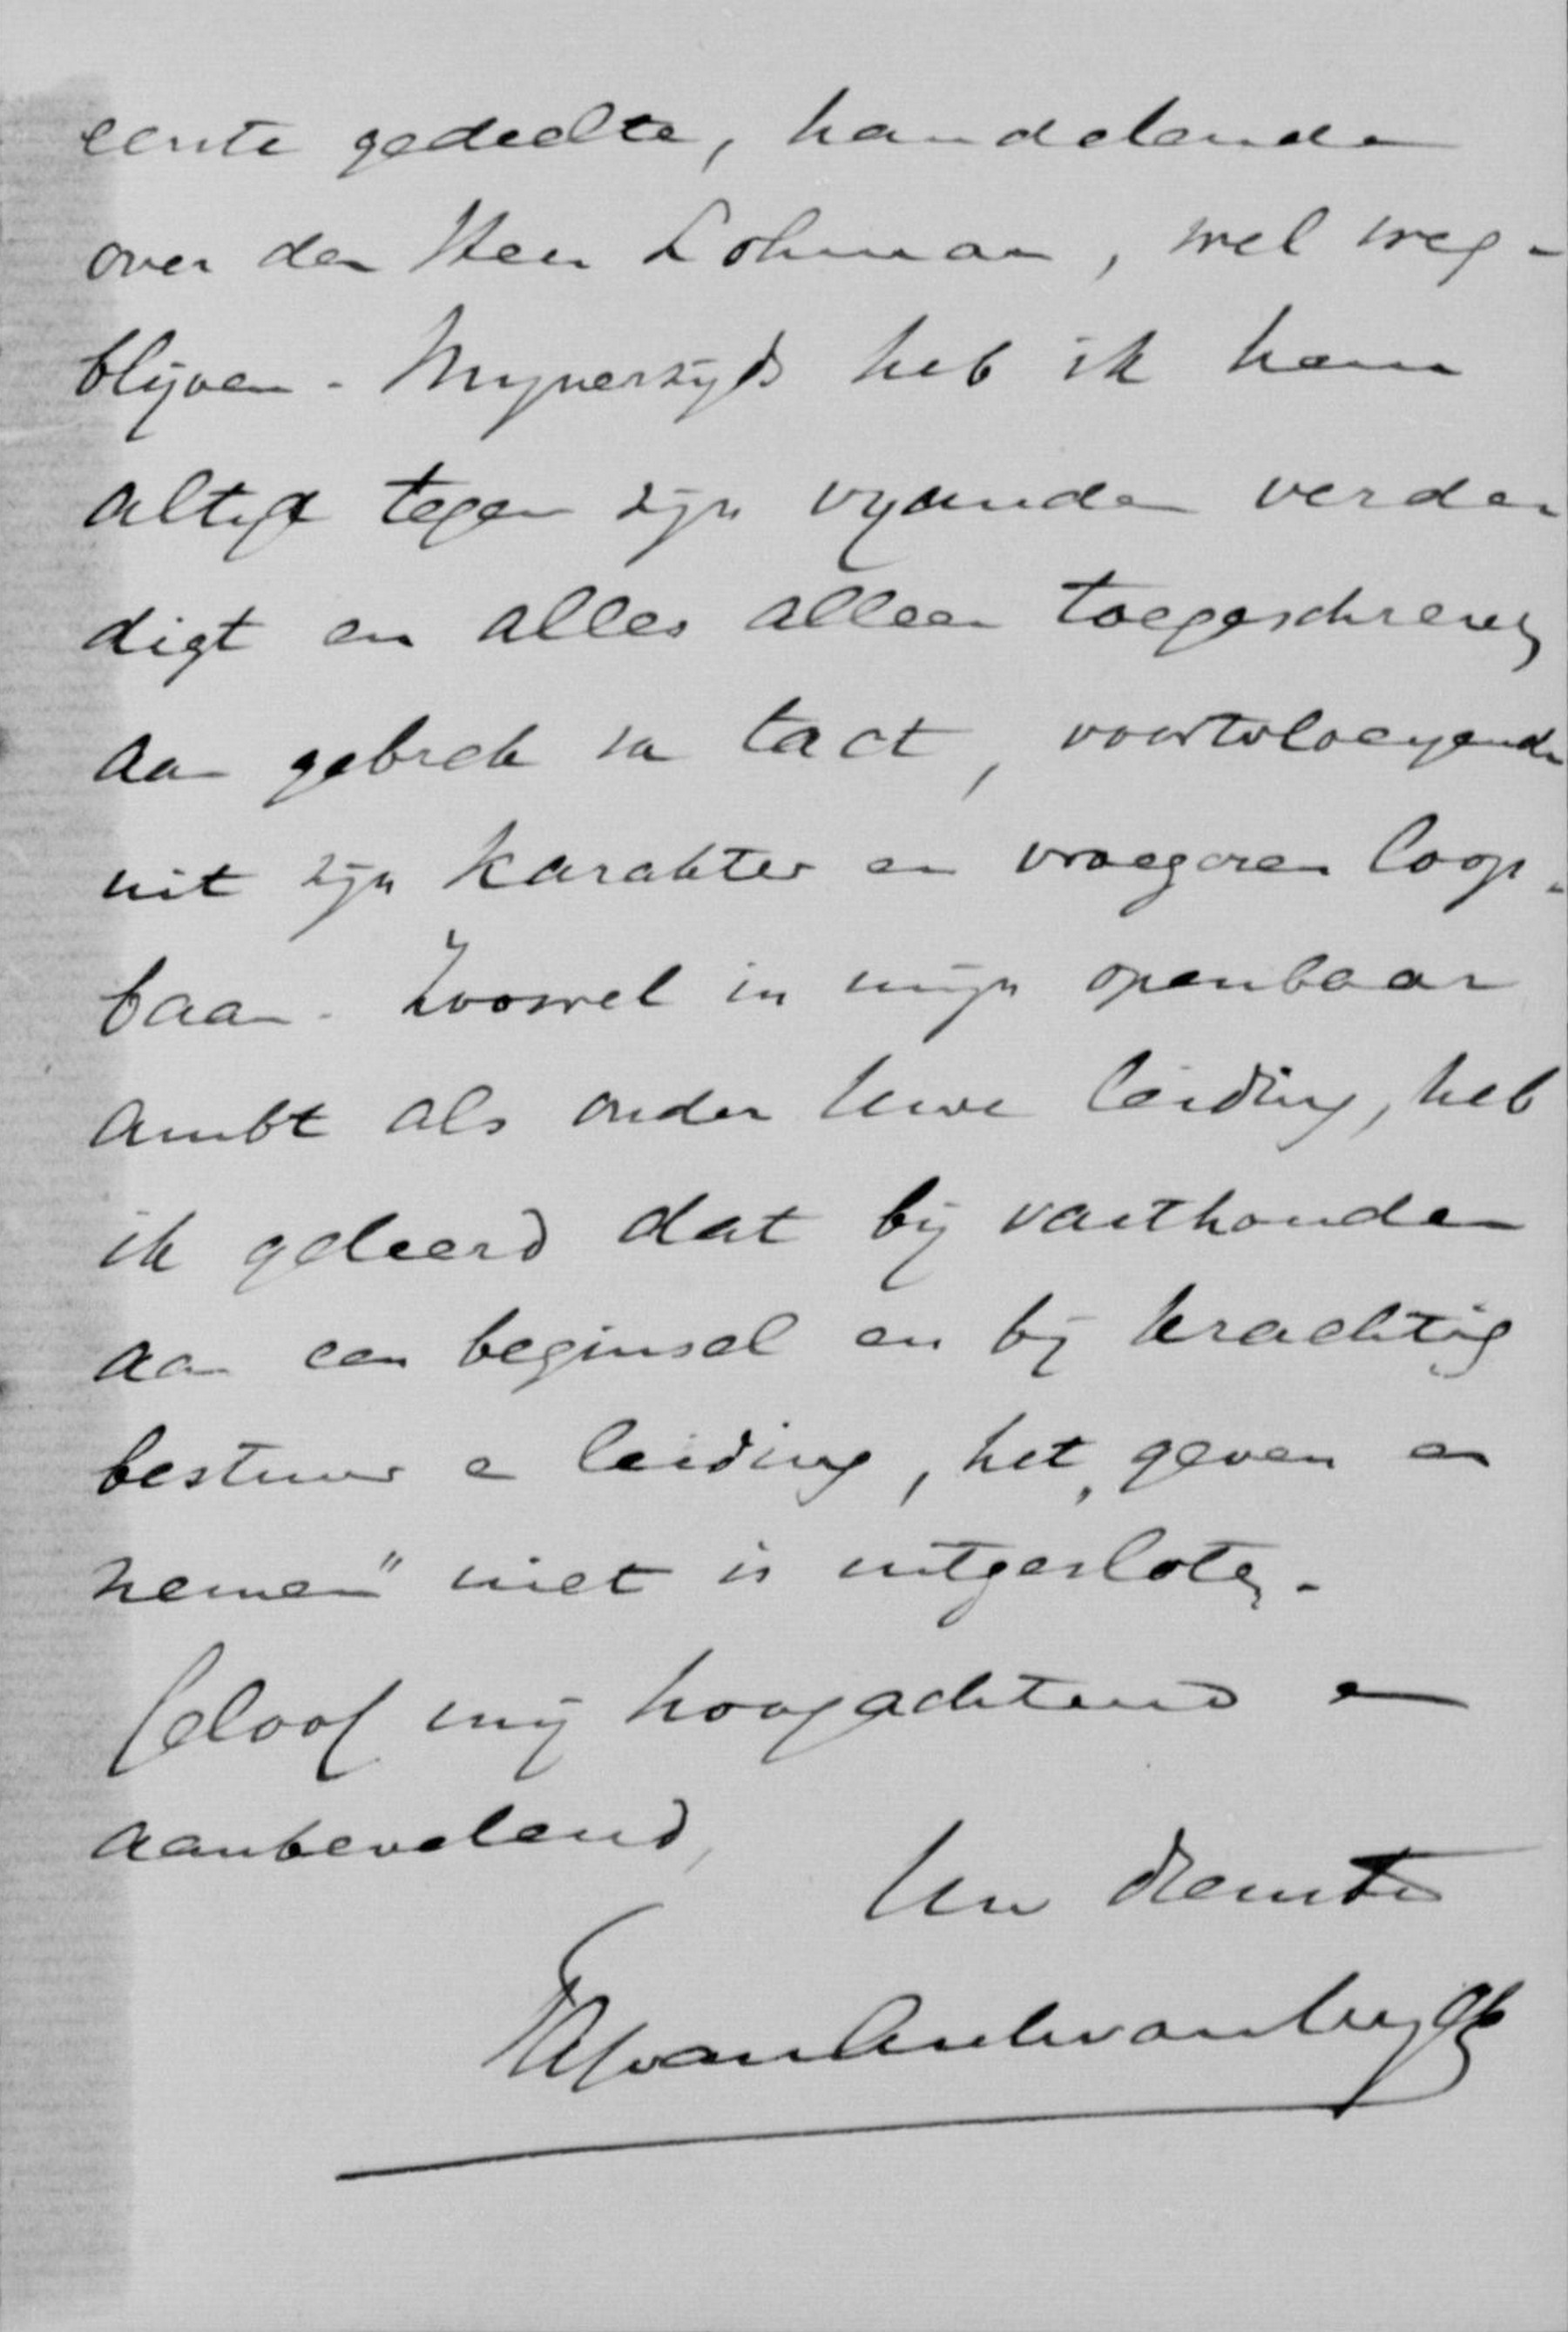 eerste gedeelte, handelende
over den Heer Lohman, wel weg-
blijven. Mijnerzijds heb ik hem
altijd tegen zijn vijanden verde
digt en alles alleen toegeschreven
aan gebrek in tact, voortvloeyende
uit zijn karakter en vroegeren loop-
baan. Zoowel in mijn openbaar
ambt als onder Uwe leiding, heb
ik geleerd dat bij vasthouden
aan een beginsel en bij krachtig
bestuur en leiding, het „geven en
nemen" niet is uitgesloten.
Geloof mij hoogachtend en
aanbevelend,
Uw dienstw